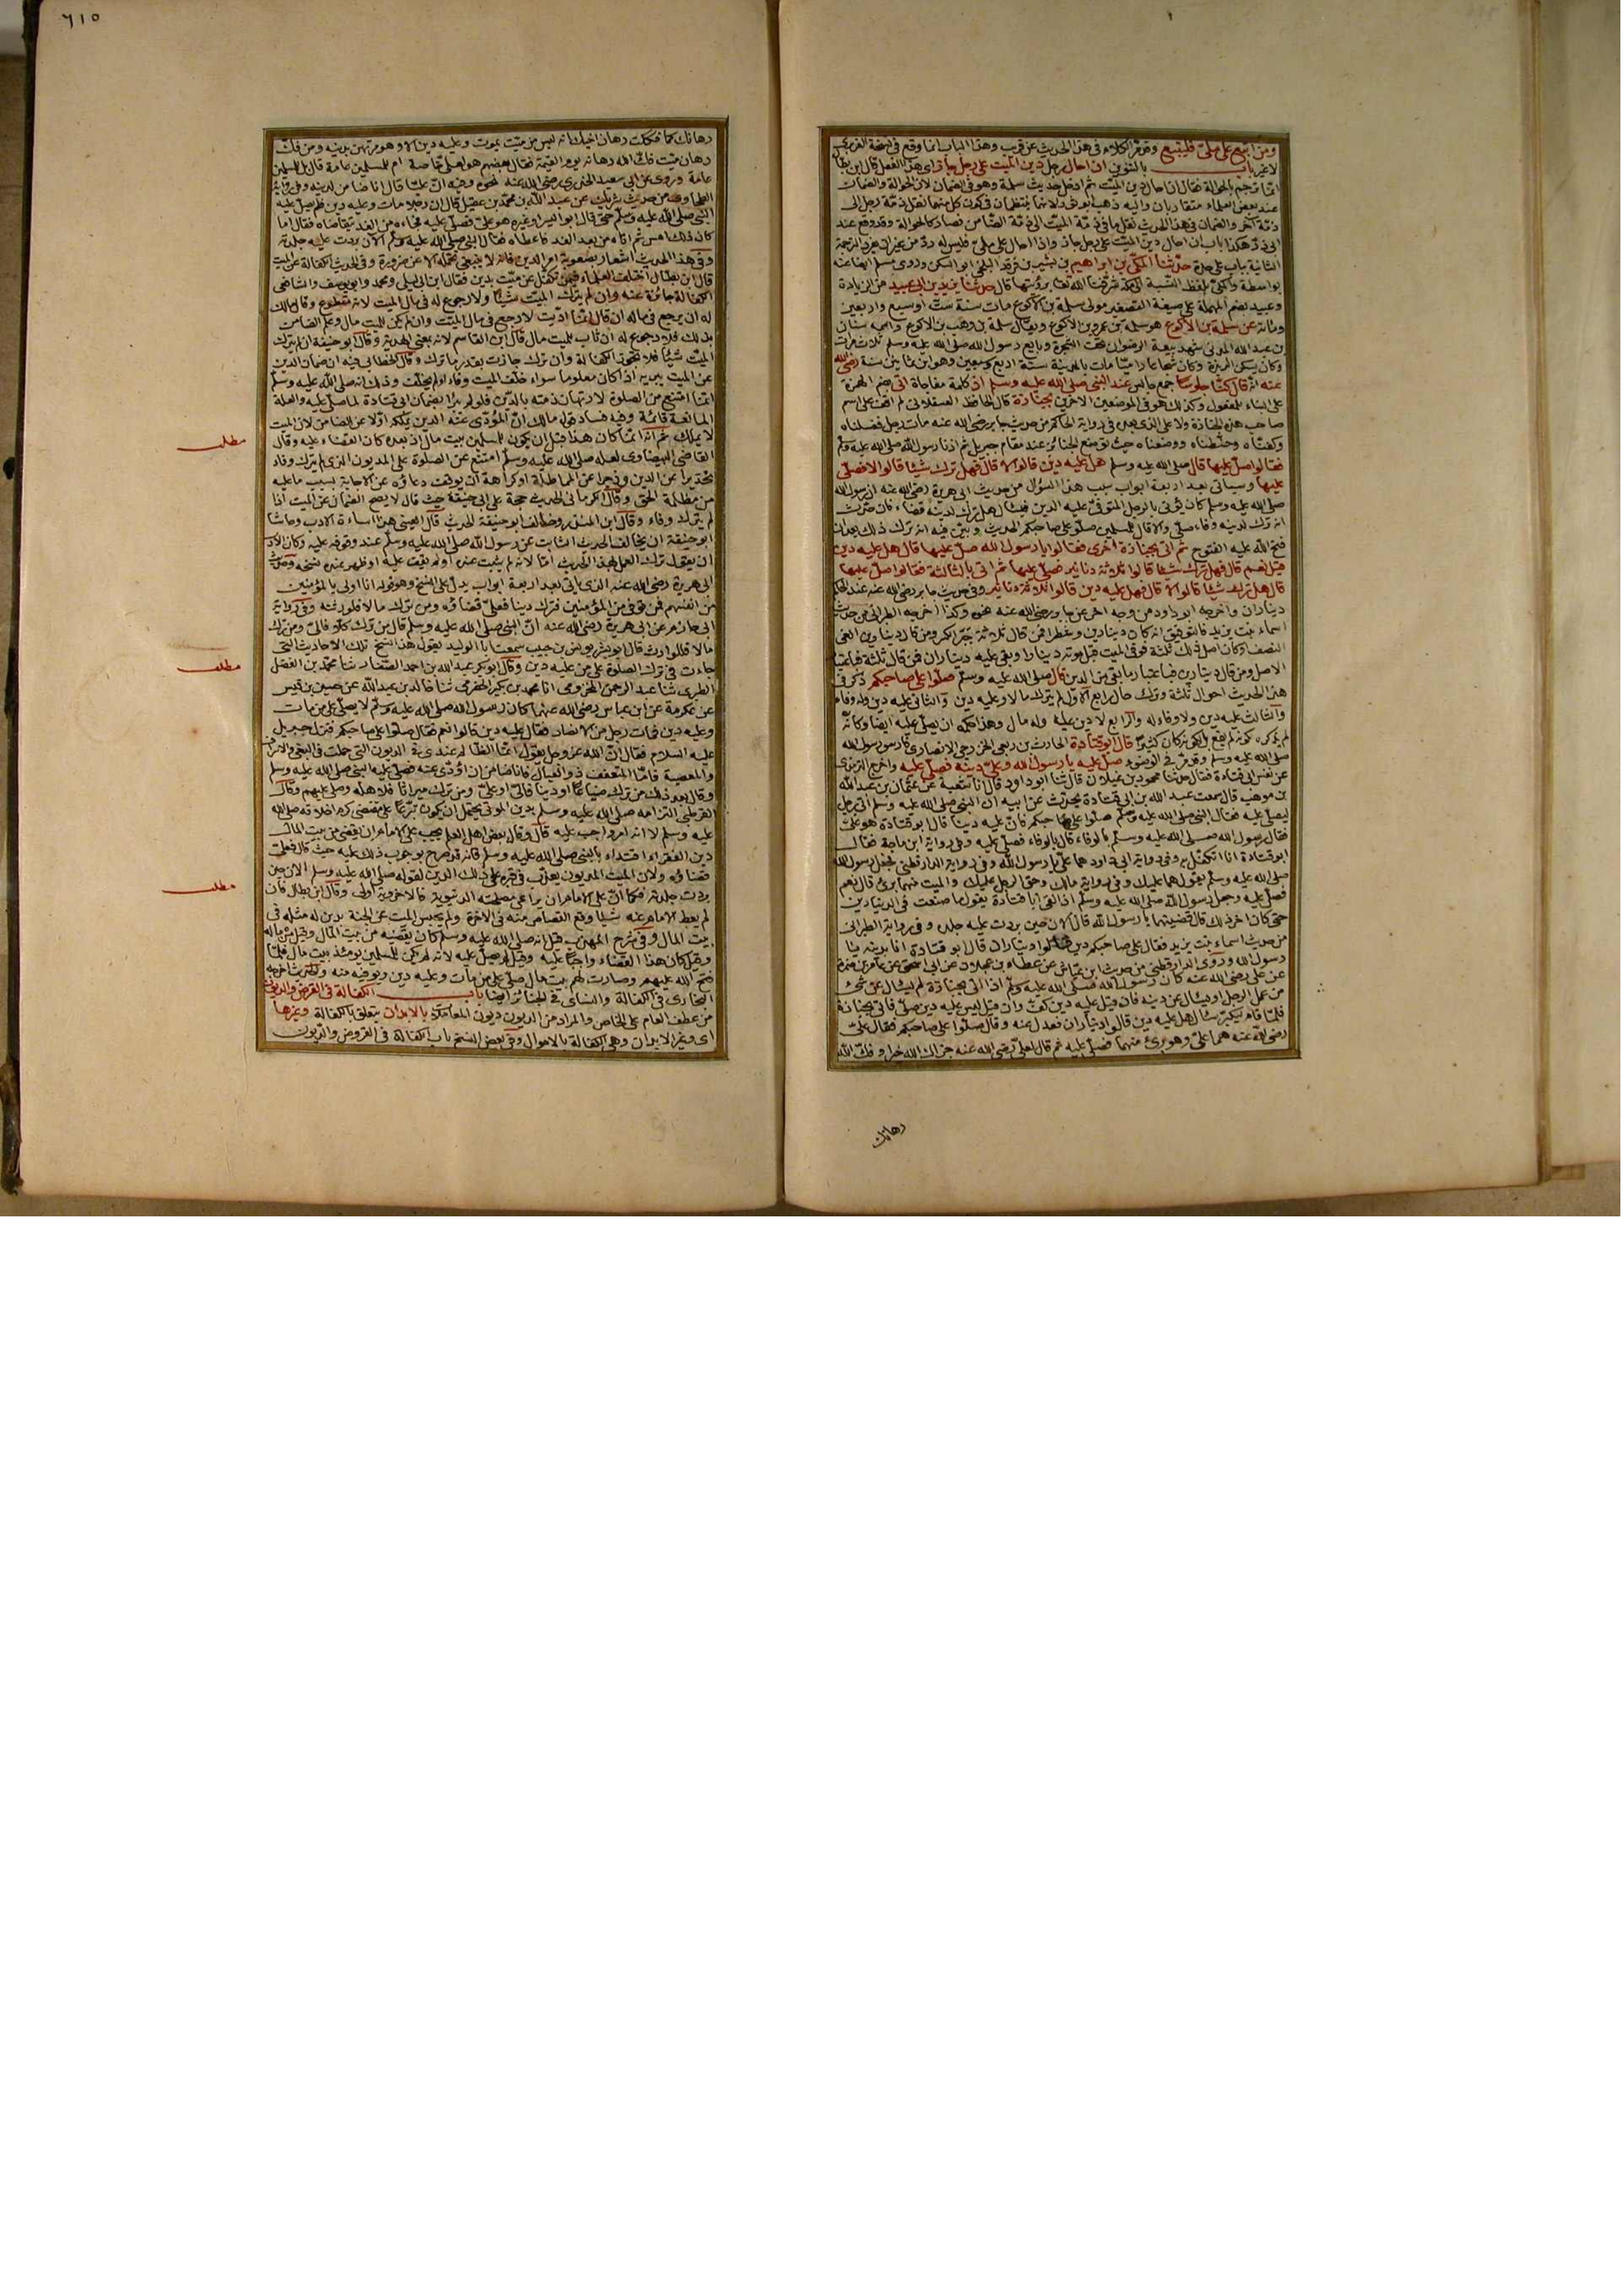 ومن اتبع على ملئ فليتبع وقد مر الكلام فى هذا الحديث عن قريب وهذا الباب انما وقع فى نسخة الفربرى
لا غير باب بالتنوين ان احال رجل دين الميت على رجل جاز اى هذا الفعل قال ابن بطال
انما ترجم بالحوالة فقال ان احال دين الميت ثم ادخل حديث سلمة وهو فى الضمان لان الحوالة والضمان
عند بعض العلماء متقاربان واليه ذهب ابو ثور لانهما ينتظمان فى كون كل منهما نقل ذمة رجل الى
ذمة آخر والضمان فى هذا الحديث نقل ما فى ذمة الميت الى ذمة الضامن فصار كالحوالة وقد وقع عند
ابى ذر هكذا باب ان احال دين الميت على رجل جاز واذا احال على ملئ فليس له رد من غير ان يفرد الترجمة
الثانية بباب على حدة حدثنا المكى بن ابراهيم بن بشير بن فرقد البلخى ابو السكن وروى مسلم ايضا عنه
بواسطة والمكى بلفظ النسبة الى مكة شرفنا الله تعالى برؤيتها قال حدثنا يزيد بن ابى عبيد من الزيادة
وعبيد بضم المهملة على صيغة التصغير مولى سلمة بن الاكوع مات سنة ست او سبع واربعين
ومائة عن سلمة بن الاكوع هو سلمة بن عمرو بن الاكوع ويقال سلمة بن وهب بن الاكوع واسمه سنان
بن عبد الله المدنى شهد بيعة الرضوان تحت الشجرة وبايع رسول الله صلى الله عليه وسلم ثلاث مرات
وكان يسكن الربذة وكان شجاعا راميا مات بالمدينة سنة اربع وسبعين وهو ابن ثمانين سنة رضى الله
عنه انه قال كنا جلوسا جمع جالس عند النبى صلى الله عليه وسلم اذ كلمة مفاجاة اتى بضم الهمزة
على البناء للمفعول وكذلك هو فى الموضعين الاخرين بجنازة قال الحافظ العسقلانى لم اقف على اسم
صاحب هذه الجنازة ولا على الذى بعده وفى رواية الحاكم من حديث جابر رضى الله عنه مات رجل فغسلناه
وكفناه وحنطناه ووضعناه حيث توضع الجنائز عند مقام جبريل ثم آذنا رسول الله صلى الله عليه وسلم
فقالوا صل عليها قال صلى الله عليه وسلم هل عليه دين قالوا لا قال فهل ترك شيئا قالوا لا فصلى
عليها وسياتى بعد اربعة ابواب سبب هذا السؤال من حديث ابى هريرة رضى الله عنه ان رسول الله
صلى الله عليه وسلم كان يؤتى بالرجل المتوفى عليه الدين فيسأل هل ترك لدينه قضاء فان حدث
انه ترك لدينه وفاء صلى والا قال للمسلمين صلوا على صاحبكم الحديث وبين فيه انه ترك ذلك بعد ان
فتح الله عليه الفتوح ثم اتى بجنازة اخرى فقالوا يا رسول الله صل عليها قال هل عليه دين
قيل نعم قال فهل ترك شيئا قالوا ثلاثة دنانير فصلى عليها ثم اتى بالثالثة فقالوا صل عليها
قال هل ترك شيئا قالوا لا قال فهل عليه دين قالوا ثلاثة دنانير وفى حديث جابر رضى الله عنه عند الحاكم
ديناران واخرجه ابو داود من وجه اخر عن جابر رضى الله عنه نحوه وكذا اخرجه الطبرانى من حديث
اسماء بنت يزيد فالتوفيق انه كان دينارين وشطرا فمن قال ثلاثة جبر الكسر ومن قال دينارين الغى
النصف او كان اصل ذلك ثلثة فوفى الميت قبل موته دينارا وبقى عليه ديناران فمن قال ثلثة فباعتبار
الاصل ومن قال دينارين فباعتبار ما بقى من الدين قال صلى الله عليه وسلم صلوا على صاحبكم ذكر فى
هذا الحديث احوال ثلثة وترك حال رابع الاول لم يترك مالا ولا عليه دين والثانى عليه دين وله وفاء
والثالث عليه دين ولا وفاء له والرابع لا دين عليه وله مال وهذا حكمه ان يصلى عليه ايضا وكانه
لم يذكر لكونه لم يقع بل لكونه كان كثيرا قال ابو قتادة الحارث بن ربعى الخزرجى الانصارى فارس رسول الله
صلى الله عليه وسلم وقد مر فى الوضوء صل عليه يا رسول الله وعلى دينه فصلى عليه واخرج الترمذى
عن نفس ابى قتادة فقال حدثنا محمود بن غيلان قال ثنا ابو داود قال انا شعبة عن عثمان بن عبد الله
بن موهب قال سمعت عبد الله بن ابى قتادة يحدث عن ابيه ان النبى صلى الله عليه وسلم اتى برجل
ليصلى عليه فقال النبى صلى الله عليه وسلم صلوا على صاحبكم فان عليه دينا قال ابو قتادة هو على
فقال رسول الله صلى الله عليه وسلم بالوفاء قال بالوفاء فصلى عليه وفى رواية ابن ماجة فقال
ابو قتادة انا اتكفل به وفى رواية ابى داود هما على يا رسول الله وفى رواية الدارقطنى فجعل رسول الله
صلى الله عليه وسلم يقول هما عليك وفى رواية مالك وحق الرجل عليك والميت منهما برئ قال نعم
فصلى عليه وجعل رسول الله صلى الله عليه وسلم اذا لقى ابا قتادة يقول ما صنعت فى الدينارين
حتى كان اخر ذلك قال قضيتهما يا رسول الله قال الآن حين بردت عليه جلده وفى رواية الطبرانى
من حديث اسماء بنت يزيد فقال على صاحبكم دين قالوا ديناران قال ابو قتادة انا بدينه يا
رسول الله وروى الدارقطنى من حديث ابن عياش عن عطاء بن عجلان عن ابى اسحق عن عاصم بن ضمرة
عن على رضى الله عنه كان رسول الله صلى الله عليه وسلم اذا اتى بجنازة لم يسأل عن شئ
من عمل الرجل ويسأل عن دينه فان قيل عليه دين كف وان قيل ليس عليه دين صلى فاتى بجنازة
فلما قام ليكبر سأل هل عليه دين قالوا ديناران فعدل عنه وقال صلوا على صاحبكم فقال على
رضى الله عنه هما على وهو برئ منهما فصلى عليه ثم قال لعلى رضى الله عنه جزاك الله خيرا وفك الله
رهانك
٦١٥
رهانك كما فككت رهان اخيك انه ليس من ميت يموت وعليه دين الا وهو مرتهن بدينه ومن فك
رهان ميت فك الله رهانه يوم القيمة فقال بعضهم هو لعلى خاصة ام للمسلمين عامة قال بل للمسلمين
عامة وروى عن ابى سعيد الخدرى رضى الله عنه نحوه وفيه ان عليا قال انا ضامن لدينه وفى رواية
الطحاوى من حديث شريك عن عبد الله بن محمد بن عقيل قال ان رجلا مات وعليه دين فلم يصل عليه
النبى صلى الله عليه وسلم حتى قال ابو اليسر او غيره هو على فصلى عليه فجاءه من الغد يتقاضاه فقال اما
كان ذلك امس ثم اتاه من بعد الغد فاعطاه فقال النبى صلى الله عليه وسلم الآن بردت عليه جلدته
وفى هذا الحديث اشعار بصعوبة امر الدين فانه لا ينبغى تحمله الا عن ضرورة وفى الحديث الكفالة عن الميت
قال ابن بطال اختلف العلماء فيمن تكفل عن ميت بدين فقال ابن ابى ليلى ومحمد وابو يوسف والشافعى
الكفالة جائزة عنه وان لم يترك الميت شيئا ولا رجوع له فى مال الميت لانه متطوع وقال مالك
له ان يرجع فى ماله ان قال انما اديت لارجع فى مال الميت وان لم يكن للميت مال وعلم الضامن
بذلك فلا رجوع له ان ثاب للميت مال قال ابن القاسم لانه بمعنى الهدية وقال ابو حنيفة ان لم يترك
الميت شيئا فلا تجوز الكفالة وان ترك جازت بقدر ما ترك وقال الخطابى فيه ان ضمان الدين
عن الميت يبريه اذا كان معلوما سواء خلف الميت وفاء او لم يخلف وذلك انه صلى الله عليه وسلم
انما امتنع من الصلوة لارتهان ذمته بالدين فلو لم يبرا بضمان ابى قتادة لما صلى عليه والعلة
المانعة قائمة وفيه فساد قول مالك ان المؤدى عنه الدين يملكه اولا عن الضامن لان الميت
لا يملك ثم انه انما كان هذا قبل ان يكون للمسلمين بيت مال اذ بعده كان القضاء عليه وقال
القاضى البيضاوى لعله صلى الله عليه وسلم امتنع عن الصلوة على المديون الذى لم يترك وفاء
تحذيرا عن الدين وزجرا عن المماطلة او كراهة ان يوقف دعاؤه عن الاجابة بسبب ما عليه
من مظلمة الحق وقال الكرمانى الحديث حجة على ابى حنيفة حيث قال لا يصح الضمان عن الميت اذا
لم يترك وفاء وقال ابن المنذر وخالف ابو حنيفة الحديث قال العينى هذا اساءة الادب وحاشا
ابو حنيفة ان يخالف الحديث الثابت عن رسول الله صلى الله عليه وسلم عند وقوفه عليه وكان الادب
ان يقول ترك العمل بهذا الحديث اما لانه لم يثبت عنده او لم يقف عليه او ظهر عنده نسخه وحديث
ابى هريرة رضى الله عنه الذى ياتى بعد اربعة ابواب يدل على النسخ وهو قوله انا اولى بالمؤمنين
من انفسهم فمن توفى من المؤمنين فترك دينا فعلى قضاؤه ومن ترك مالا فلورثته وفى رواية
ابى حازم عن ابى هريرة رضى الله عنه ان النبى صلى الله عليه وسلم قال من ترك كلا فالى ومن ترك
مالا فللوارث قال ابو بشر يونس بن حبيب سمعت ابا الوليد يقول هذا نسخ تلك الاحاديث التى
جاءت فى ترك الصلوة على من عليه دين وقال ابو بكر عبد الله بن احمد الصفار ثنا محمد بن الفضل
الطبرى ثنا عبد الرحمن المخزومى انا محمد بن بكير الحضرمى ثنا خالد بن عبد الله عن حسين بن قيس
عن عكرمة عن ابن عباس رضى الله عنهما كان رسول الله صلى الله عليه وسلم لا يصلى على من مات
وعليه دين فمات رجل من الانصار فقال عليه دين قالوا نعم فقال صلوا على صاحبكم فنزل جبريل
عليه السلام فقال ان الله عز وجل يقول انما الظالم عندى فى الديون التى حملت فى البغى والاسراف
والمعصية فاما المتعفف ذو العيال فانا ضامن ان اؤدى عنه فصلى عليه النبى صلى الله عليه وسلم
وقال بعد ذلك من ترك ضياعا او دينا فالى او على ومن ترك ميراثا فلاهله وصلى عليهم وقال
القرطبى التزامه صلى الله عليه وسلم بدين الموتى يحتمل ان يكون تبرعا على مقتضى كرم اخلاقه صلى الله
عليه وسلم لا انه امر واجب عليه قال وقال بعض اهل العلم يجب على الامام ان يقضى من بيت المال
دين الفقراء اقتداء بالنبى صلى الله عليه وسلم فانه قد صرح بوجوب ذلك عليه حيث قال فعلى
قضاؤه ولان الميت المديون يعذب فى قبره على ذلك الدين لقوله صلى الله عليه وسلم الآن حين
بردت جلدته فكما ان على الامام ان يراعى مصلحته الدنيوية فالاخروية اولى وقال ابن بطال فان
لم يعط الامام عنه شيئا وقع القصاص منه فى الاخرة ولم يحبس الميت عن الجنة بدين له مثله فى
بيت المال وفى شرح المهذب قيل انه صلى الله عليه وسلم كان يقضيه من بيت المال وقيل من ماله
وقيل كان هذا القضاء واجبا عليه وقيل لم يصل عليه لانه لم يكن للمسلمين يومئذ بيت مال فلما
فتح الله عليهم وصارت لهم بيت مال صلى على من مات وعليه دين ويوفيه منه والحديث اخرجه
البخارى فى الكفالة والنسائى فى الجنائز ايضا باب الكفالة فى القرض والديون
من عطف العام على الخاص والمراد من الديون ديون المعاملات بالابدان يتعلق بالكفالة وغيرها
اى وغير الابدان وهى الكفالة بالاموال وفى بعض النسخ باب الكفالة فى القروض والديون
مطلب
مطلب
مطلب